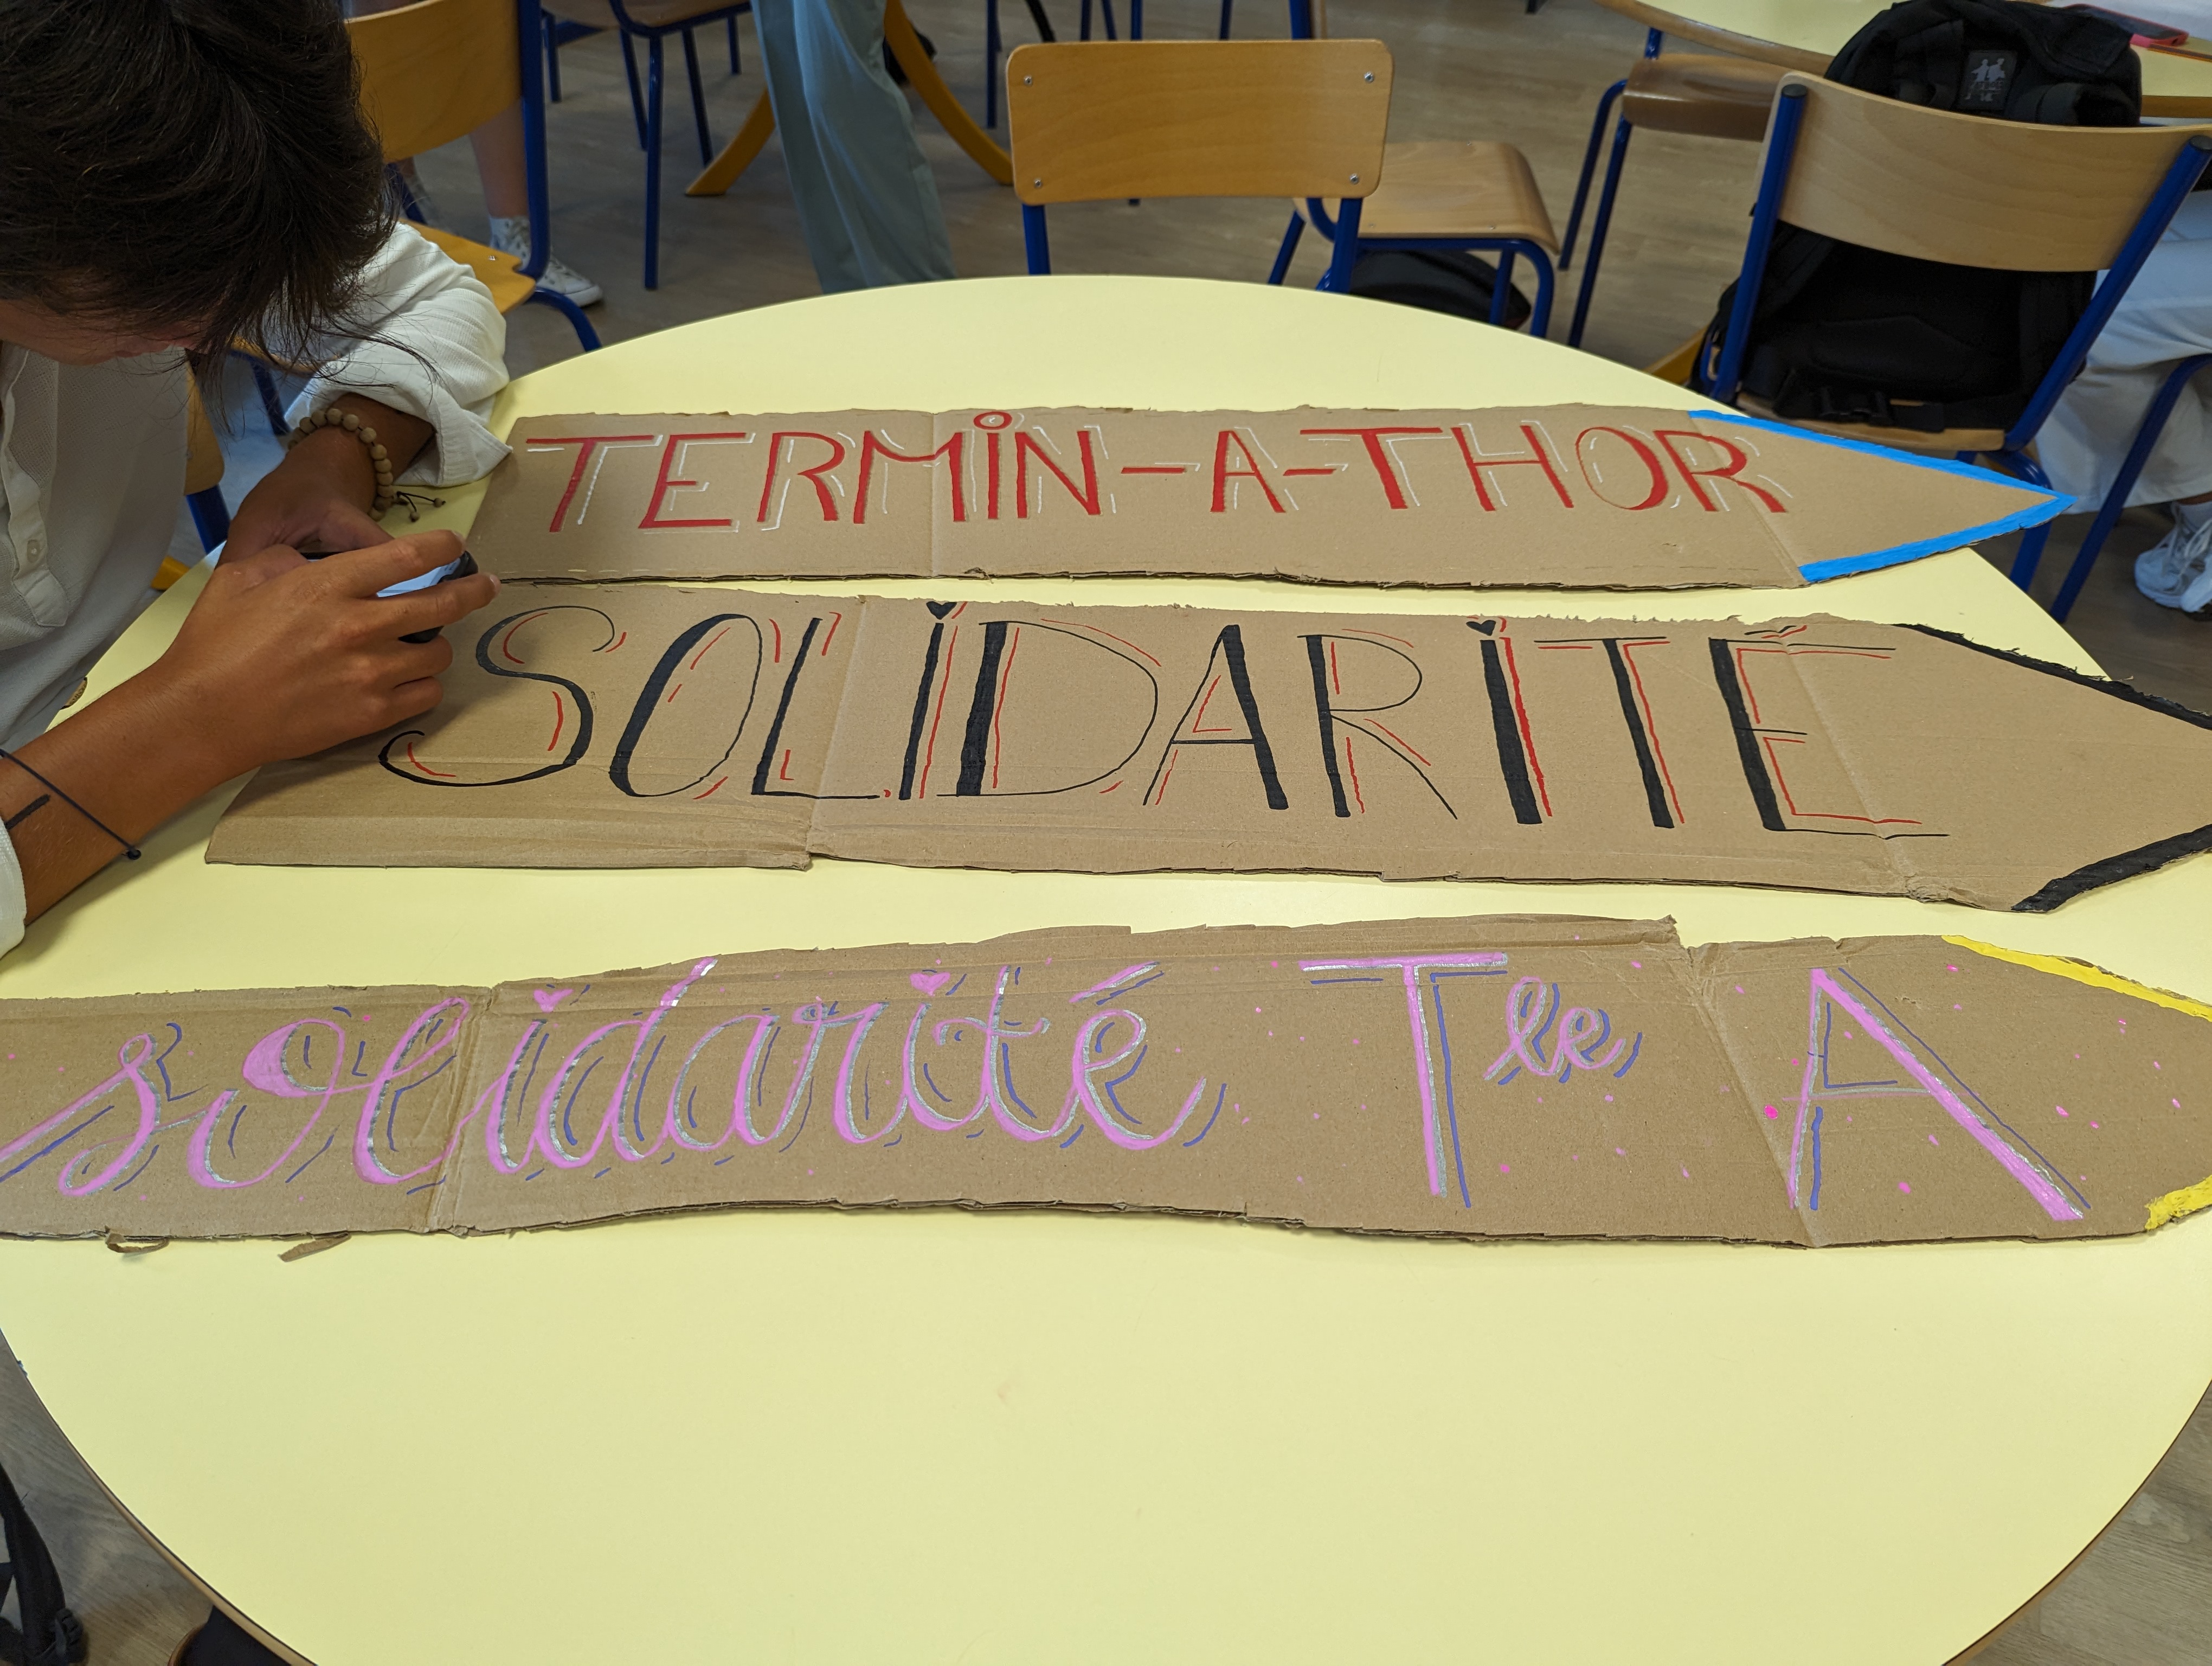 TERMiN-A-THOR
SOLiDARiTÉ
solidarité Tle A